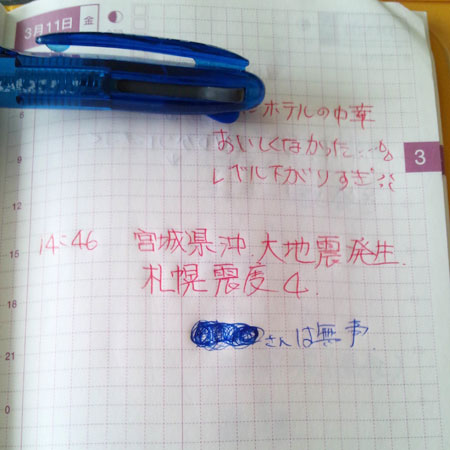 3月11日 金
ホテルの中華
おいしくなかった…
レベル下がりすぎ
3
14:46 宮城県沖 大地震発生.
札幌震度4.
さんは無事
15
18
21
0